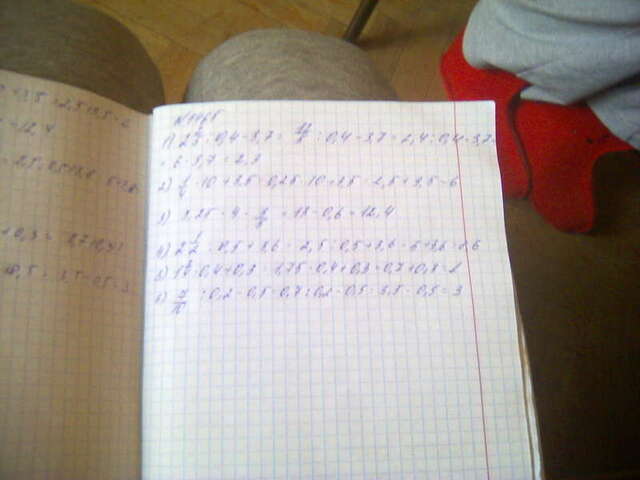 + 3,5 = 2,5 + 3,5 =
= 12,4
+ 0,3 = 0,7 + 0,3
0,5 = 3,5 - 0,5 = 3
N 1165
1) 2 2/5 : 0,4 - 3,7 = 12/5 : 0,4 - 3,7 = 2,4 : 0,4 - 3,7 =
= 6 - 3,7 = 2,3
2) 1/4 · 10 + 3,5 = 0,25 · 10 + 3,5 = 2,5 + 3,5 = 6
3) 3,25 · 4 - 3/5 = 13 - 0,6 = 12,4
4) 2 1/2 : 0,5 + 3,6 = 2,5 : 0,5 + 3,6 = 5 + 3,6 = 8,6
5) 1 3/4 · 0,4 + 0,3 = 1,75 · 0,4 + 0,3 = 0,7 + 0,3 = 1
6) 7/10 : 0,2 - 0,5 = 0,7 : 0,2 - 0,5 = 3,5 - 0,5 = 3